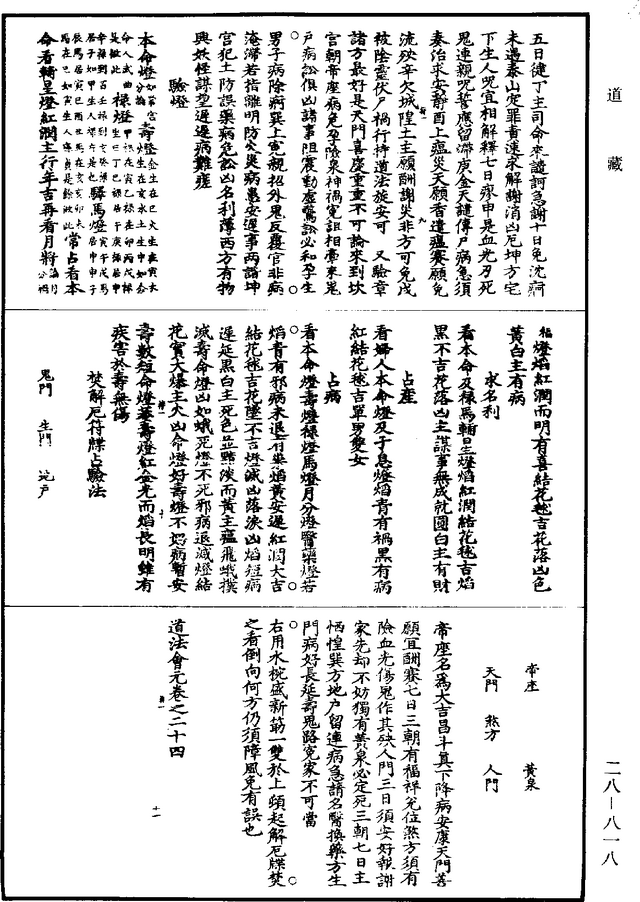 道藏
五日徒丁主司命來譴訶急謝十日免沈痾
未遇泰山定罪責速求解謝消凶厄坤方宅
下生人咒宜相解釋七日瘳申是血光刃死
鬼連親咒誓應留滯庚金天譴傳尸病急須
奏治求安靜酉上瘟災天願香遣瘟賽願免
流殃辛欠城隍土主願酬謝災非方可免戌
被陰靈伏尸禍行持道法旋安可　又驗章
諸方最好是天門喜慶重重不可論來到坎
宮朝帝座病免孕險泉神禍寃詛相牽來艮
戶病訟俱凶諸事阻震動虛驚訟必和孕生
男子病除痾巽上寃親招外鬼反覆官非病
淹滯若指離明防火災病患安遲事兩諧坤
宮犯土防誤藥病危訟凶名利薄兩方有物
興妖怪謀望遲遲病難瘥
驗燈
本命燈
壽燈
祿燈
驛馬燈
常占看本
命看轉星燈紅潤主行年吉再看月將
燈焰紅潤而明有喜結花毬吉花落凶色
黃白主有病
求名利
看本命及祿馬轉星燈焰紅潤結花毬吉焰
黑不吉花落凶主謀事無成就圓白主有財
占產
看婦人本命燈及子息燈焰青有禍黑有病
紅結花毬吉單男雙女
占病
看本命燈壽燈祿燈馬燈月分燈醫藥燈若
焰青有邪病未退有災焰黃安遲紅潤大吉
結花毬吉花墜不吉燈滅凶落淚凶焰短病
遲延黑白主死色並黯淡而黃主瘟飛蛾撲
滅壽命燈凶如蛾死燈不死邪病退滅燈結
花實大爆主火凶命燈好壽燈不妨病暫安
壽數短命燈暮壽燈紅金光而焰長明雖有
疾害於壽無傷
焚解厄符牒占驗法
鬼門　生門　地戶
帝座　黃泉
天門　煞方　人門
帝座名爲大吉昌斗眞下降病安康天門善
願宜酬賽七日三朝有福祥兌位煞方須有
險血光傷鬼作其殃人門三日須安好報謝
家先却不妨獨有黃泉必定死三朝七日主
恓惶巽方地戶留連病急請名醫換藥方生
門病好長延壽鬼路寃家不可當
右用水椀盛新筯一雙於上頭起解厄牒焚
之看倒向何方仍須障風免有誤也
道法會元卷之二十四
二八－八一八